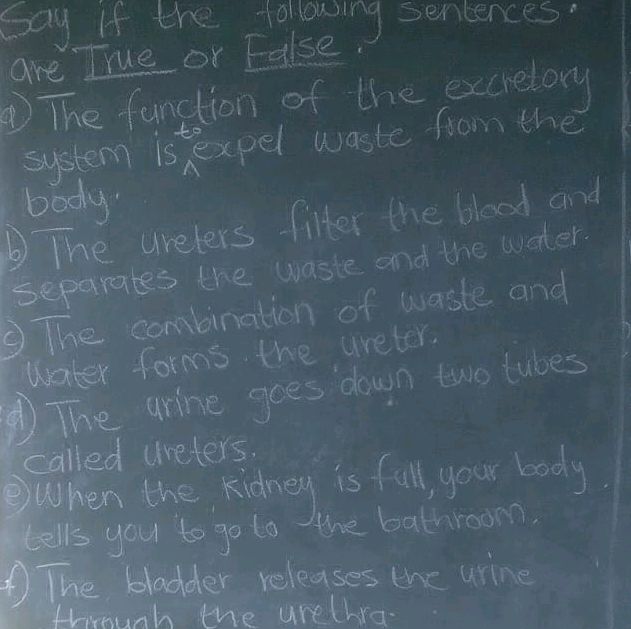 Say if the following sentences.
are True or False.
a) The function of the excretory
system is to expel waste from the
body.
b) The ureters filter the blood and
separates the waste and the water.
c) The combination of waste and
water forms the ureter.
d) The urine goes down two tubes
called ureters.
e) When the kidney is full, your body
tells you to go to the bathroom.
f) The bladder releases the urine
through the urethra.